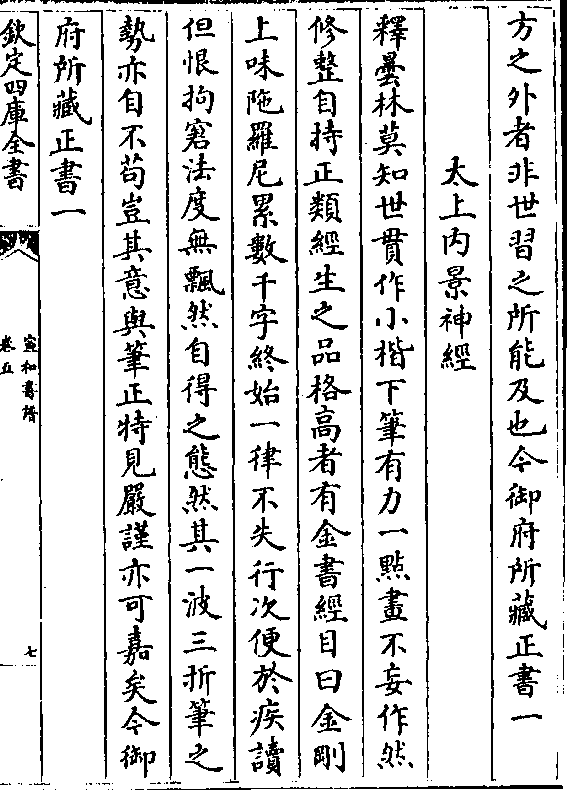 方之外者非世習之所能及也今御府所藏正書一
太上内景神經
釋曇林莫知世貫作小楷下筆有力一點畫不妄作然
修整自持正類經生之品格高者有金書經目曰金剛
上味陁羅尼累數千字終始一律不失行次便於疾讀
但恨拘窘法度無飄然自得之態然其一波三折筆之
勢亦自不苟豈其意與筆正特見嚴謹亦可嘉矣今御
府所藏正書一
欽定四庫全書
宣和書譜
卷五
七